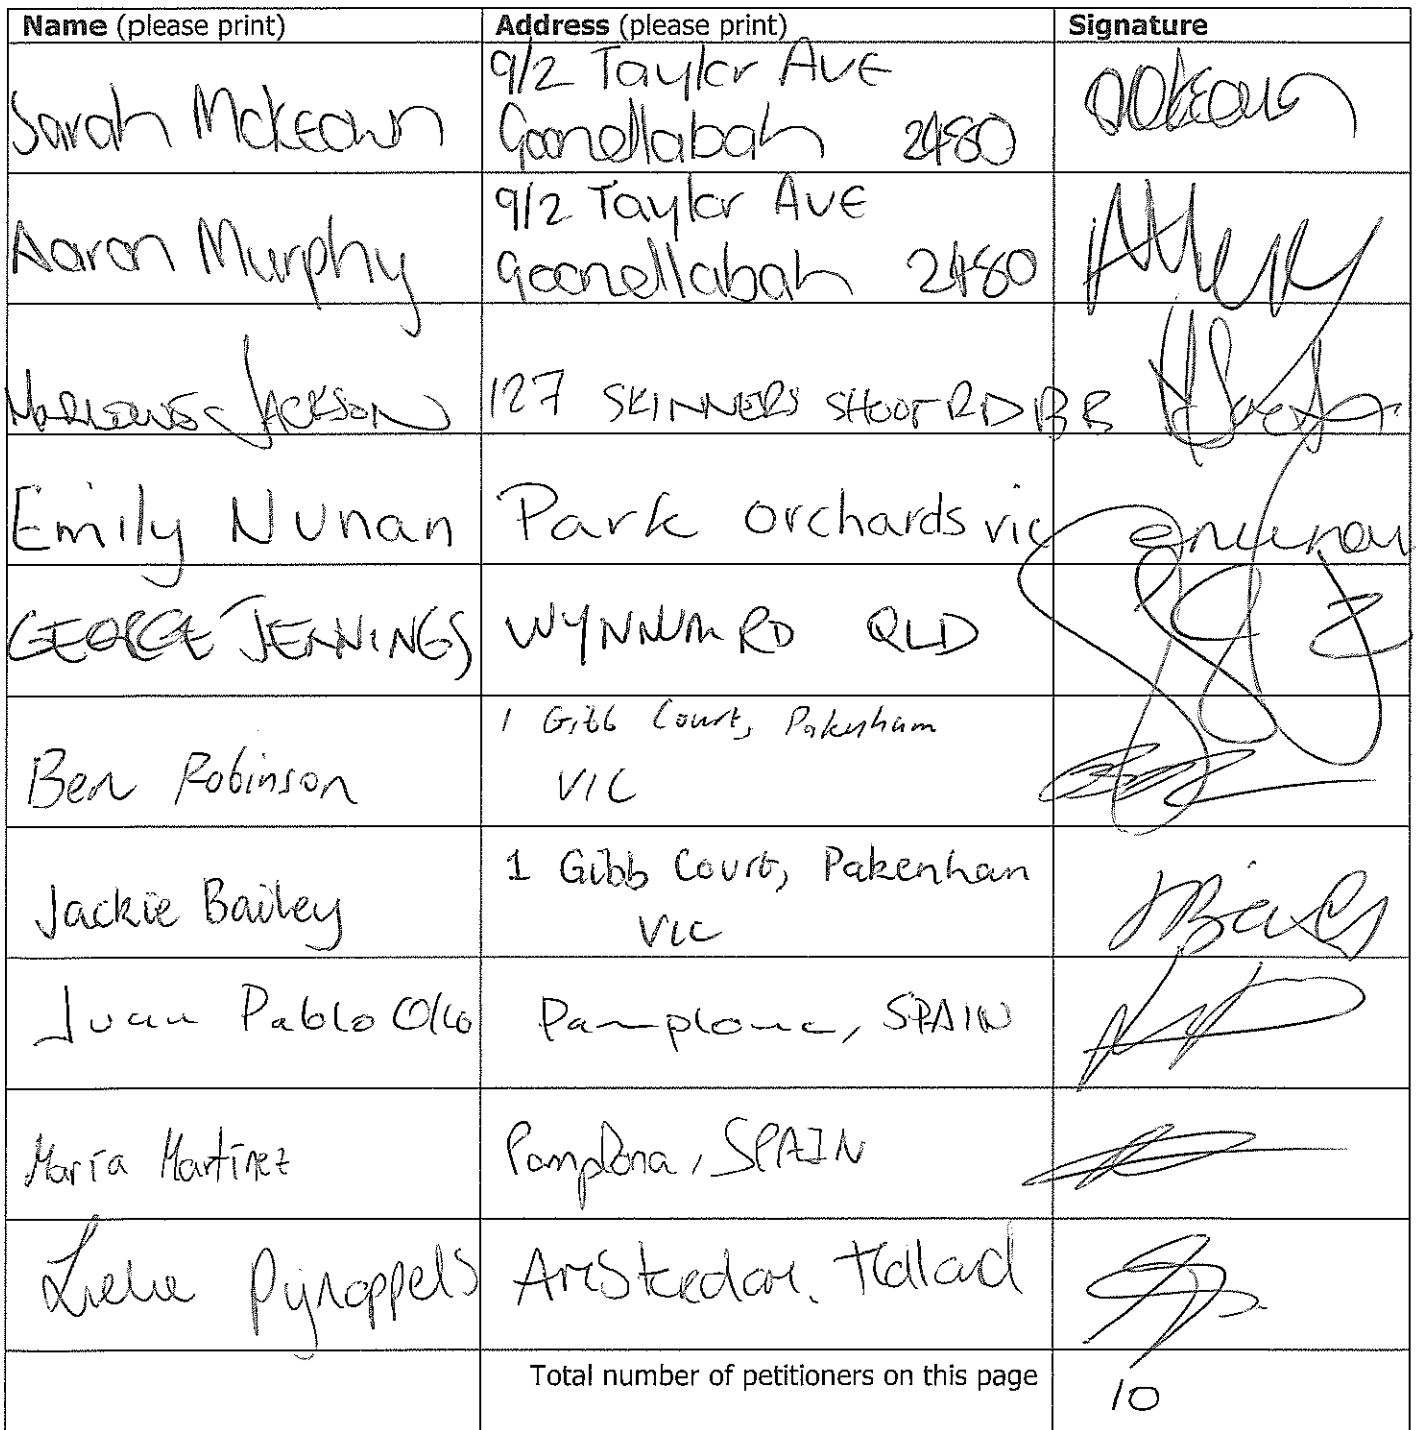 Name (please print) Address (please print) Signature
Sarah McKeown 9/2 Taylor Ave
Goonellabah 2480
Aaron Murphy 9/2 Taylor Ave
Goonellabah 2480
JACKSON 127 SKINNERS SHOOT RD BB
Emily Nunan Park Orchards vic
GEORGE JENNINGS WYNNUM RD QLD
Ben Robinson 1 Gibb Court, Pakenham
VIC
Jackie Bailey 1 Gibb Court, Pakenham
VIC
Juan Pablo Pamplona, SPAIN
María Martínez Pamplona, SPAIN
Pijnappels Amsterdam, Holland
Total number of petitioners on this page 10